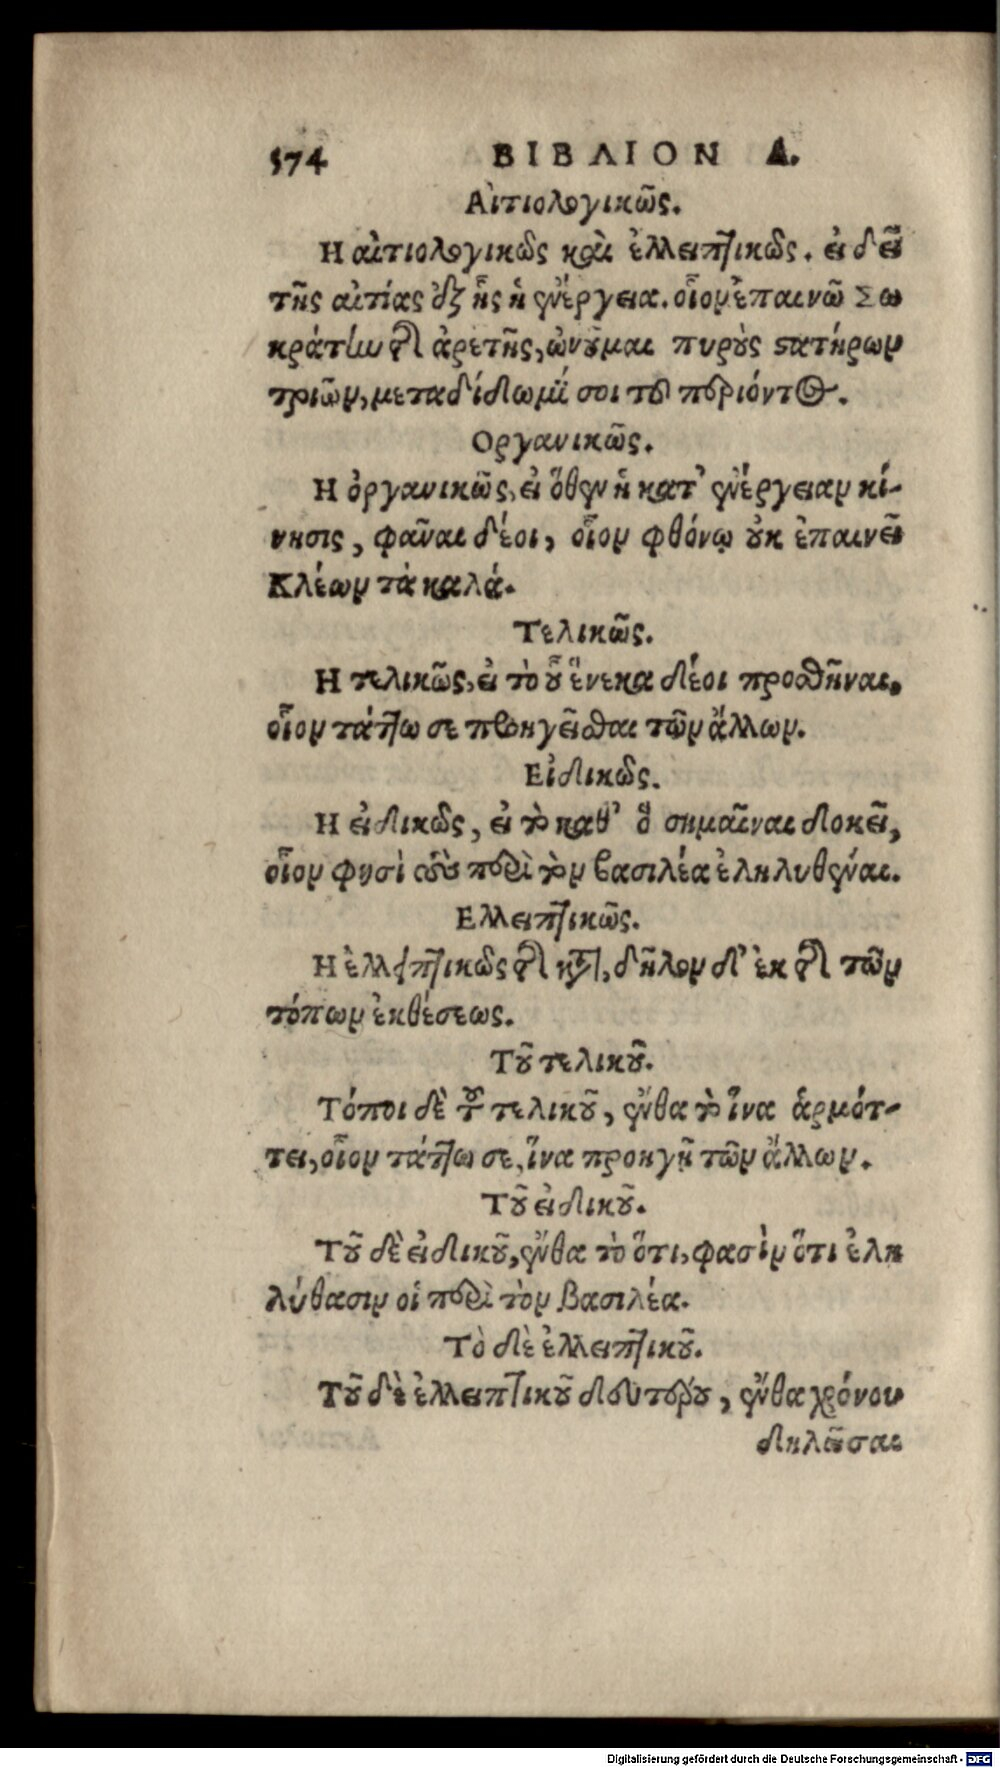 574 ΒΙΒΛΙΟΝ Δ.
Αἰτιολογικῶς.
Η αἰτιολογικῶς καὶ ἐλλειπτικῶς. εἰ δεῖ
τῆς αἰτίας δι᾽ ἧς ἡ ἐνέργεια. οἷον ἐπαινῶ Σω
κράτην τῆς ἀρετῆς, ὠνοῦμαι πυροὺς στατήρων
τριῶν, μεταδίδωμί σοι τοῦ περιόντος.
Οργανικῶς.
Η ὀργανικῶς, εἰ ὅθεν ἡ κατ᾽ ἐνέργειαν κί-
νησις, φᾶναι δέοι, οἷον φθόνῳ οὐκ ἐπαινεῖ
Κλέων τὰ καλά.
Τελικῶς.
Η τελικῶς, εἰ τὸ οὗ ἕνεκα δέοι προσθῆναι,
οἷον τάττω σε προηγεῖσθαι τῶν ἄλλων.
Εἰδικῶς.
Η εἰδικῶς, εἰ τὸ καθ᾽ ὃ σημᾶιναι δοκεῖ,
οἷον φησὶ τοὺς περὶ τὸν βασιλέα ἐληλυθέναι.
Ελλειπτικῶς.
Η ἐλλειπτικῶς τῆς , δῆλον δ᾽ ἐκ τῆς τῶν
τόπων ἐκθέσεως.
Τοῦ τελικοῦ.
Τόποι δὲ τοῦ τελικοῦ, ἔνθα τὸ ἵνα ἁρμότ-
τει, οἷον τάττω σε, ἵνα προηγῇ τῶν ἄλλων.
Τοῦ εἰδικοῦ.
Τοῦ δὲ εἰδικοῦ, ἔνθα τὸ ὅτι, φασὶν ὅτι ἐλη
λύθασιν οἱ περὶ τὸν βασιλέα.
Τὸ δὲ ἐλλειπτικοῦ.
Τοῦ δὲ ἐλλειπτικοῦ δευτέρου, ἔνθα χρόνου
δηλῶσαι
Digitalisierung gefördert durch die Deutsche Forschungsgemeinschaft - DFG